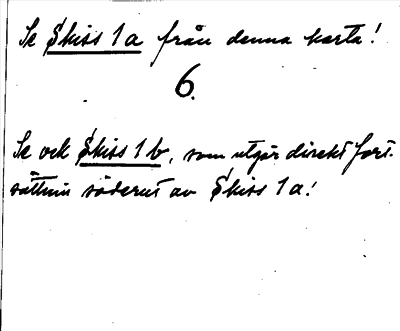 Se Skiss 1a från denna karta!
6.
Se ock Skiss 1b, som utgör direkt fort-
sättnin söderut av Skiss 1a!